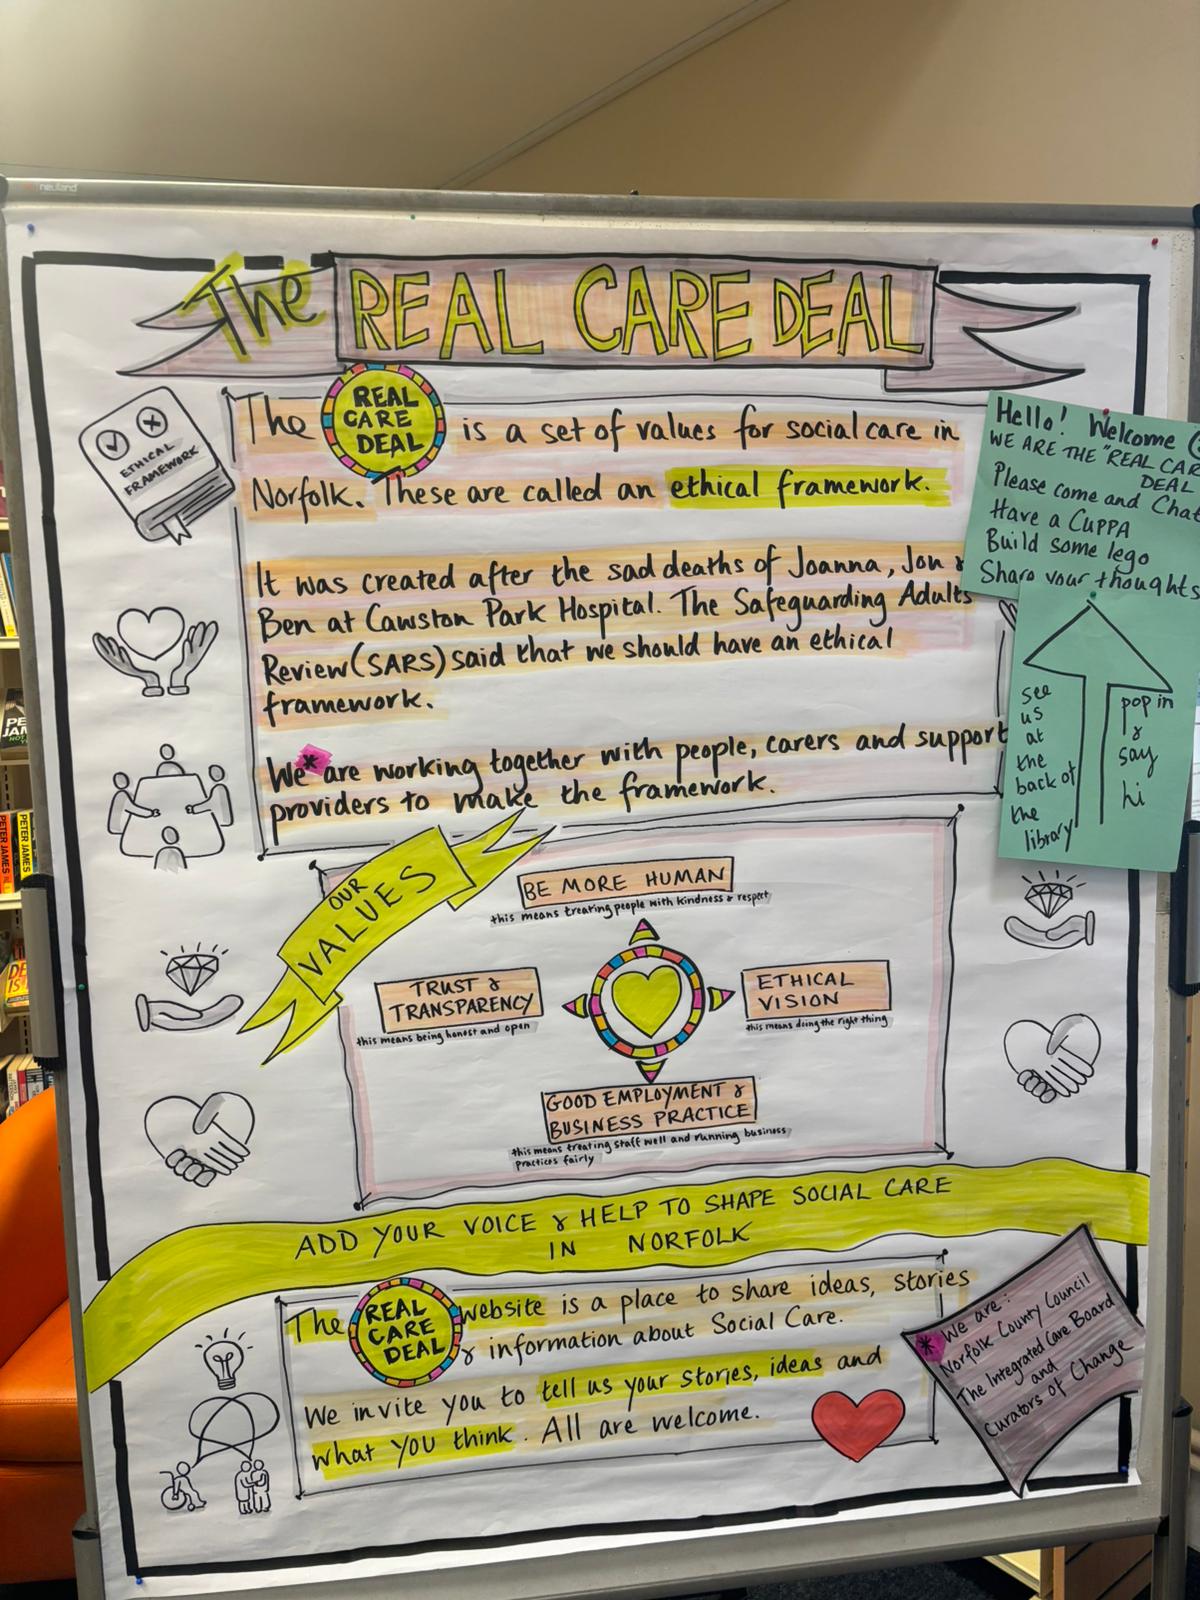 neuland
The REAL CARE DEAL
ETHICAL
FRAMEWORK
The REAL CARE DEAL is a set of values for social care in
Norfolk. These are called an ethical framework.
It was created after the sad deaths of Joanna, Jon &
Ben at Cawston Park Hospital. The Safeguarding Adults
Review (SARS) said that we should have an ethical
framework.
We* are working together with people, carers and support
providers to make the framework.
Hello! Welcome
WE ARE THE "REAL CAR
DEAL
Please come and Chat
Have a CUPPA
Build some lego
Share your thoughts
see
us
at
the
back of
the
library
pop in
&
say
hi
OUR
VALUES
BE MORE HUMAN
this means treating people with kindness & respect
TRUST &
TRANSPARENCY
this means being honest and open
ETHICAL
VISION
this means doing the right thing
GOOD EMPLOYMENT &
BUSINESS PRACTICE
this means treating staff well and running business
practices fairly
ADD YOUR VOICE & HELP TO SHAPE SOCIAL CARE
IN NORFOLK
The REAL CARE DEAL website is a place to share ideas, stories
& information about Social Care.
We invite you to tell us your stories, ideas and
what you think. All are welcome.
* We are:
Norfolk County Council
The Integrated Care Board
and
Curators of Change
PETER JAMES
PETER JAMES